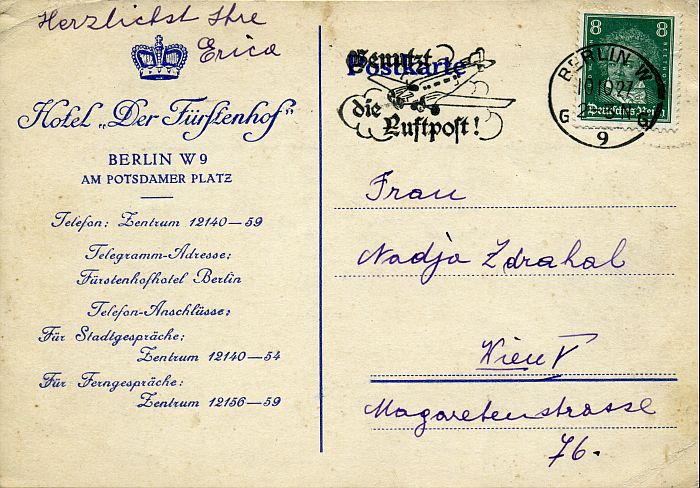 Herzlichst Ihre
Erica
Hotel „Der Fürstenhof"
BERLIN W 9
AM POTSDAMER PLATZ
Telefon: Zentrum 12140—59
Telegramm-Adresse:
Fürstenhofhotel Berlin
Telefon-Anschlüsse:
Für Stadtgespräche:
Zentrum 12140—54
Für Ferngespräche:
Zentrum 12156—59
Postkarte
Benutzt
die Luftpost!
8 8
Deutsches Reich
BERLIN W
9
Frau
Nadja Zdrahal
Wien V
Magaretenstrasse
76.